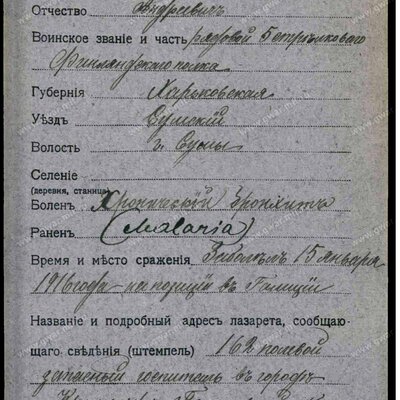 Отчество Андреевичъ
Воинское званіе и часть рядовой 5 стрѣлковаго
Финляндскаго полка
Губернія Харьковская
Уѣздъ Сумскій
Волость г. Сумы
Селеніе
(деревня, станица)
Боленъ Хроническій бронхитъ
Раненъ (Malaria)
Время и мѣсто сраженія Заболѣлъ 15 января
1916 года на позиціи въ Галиціи
Названіе и подробный адресъ лазарета, сообщаю-
щаго свѣдѣнія (штемпель) 162 полевой
запасный госпиталь въ городѣ